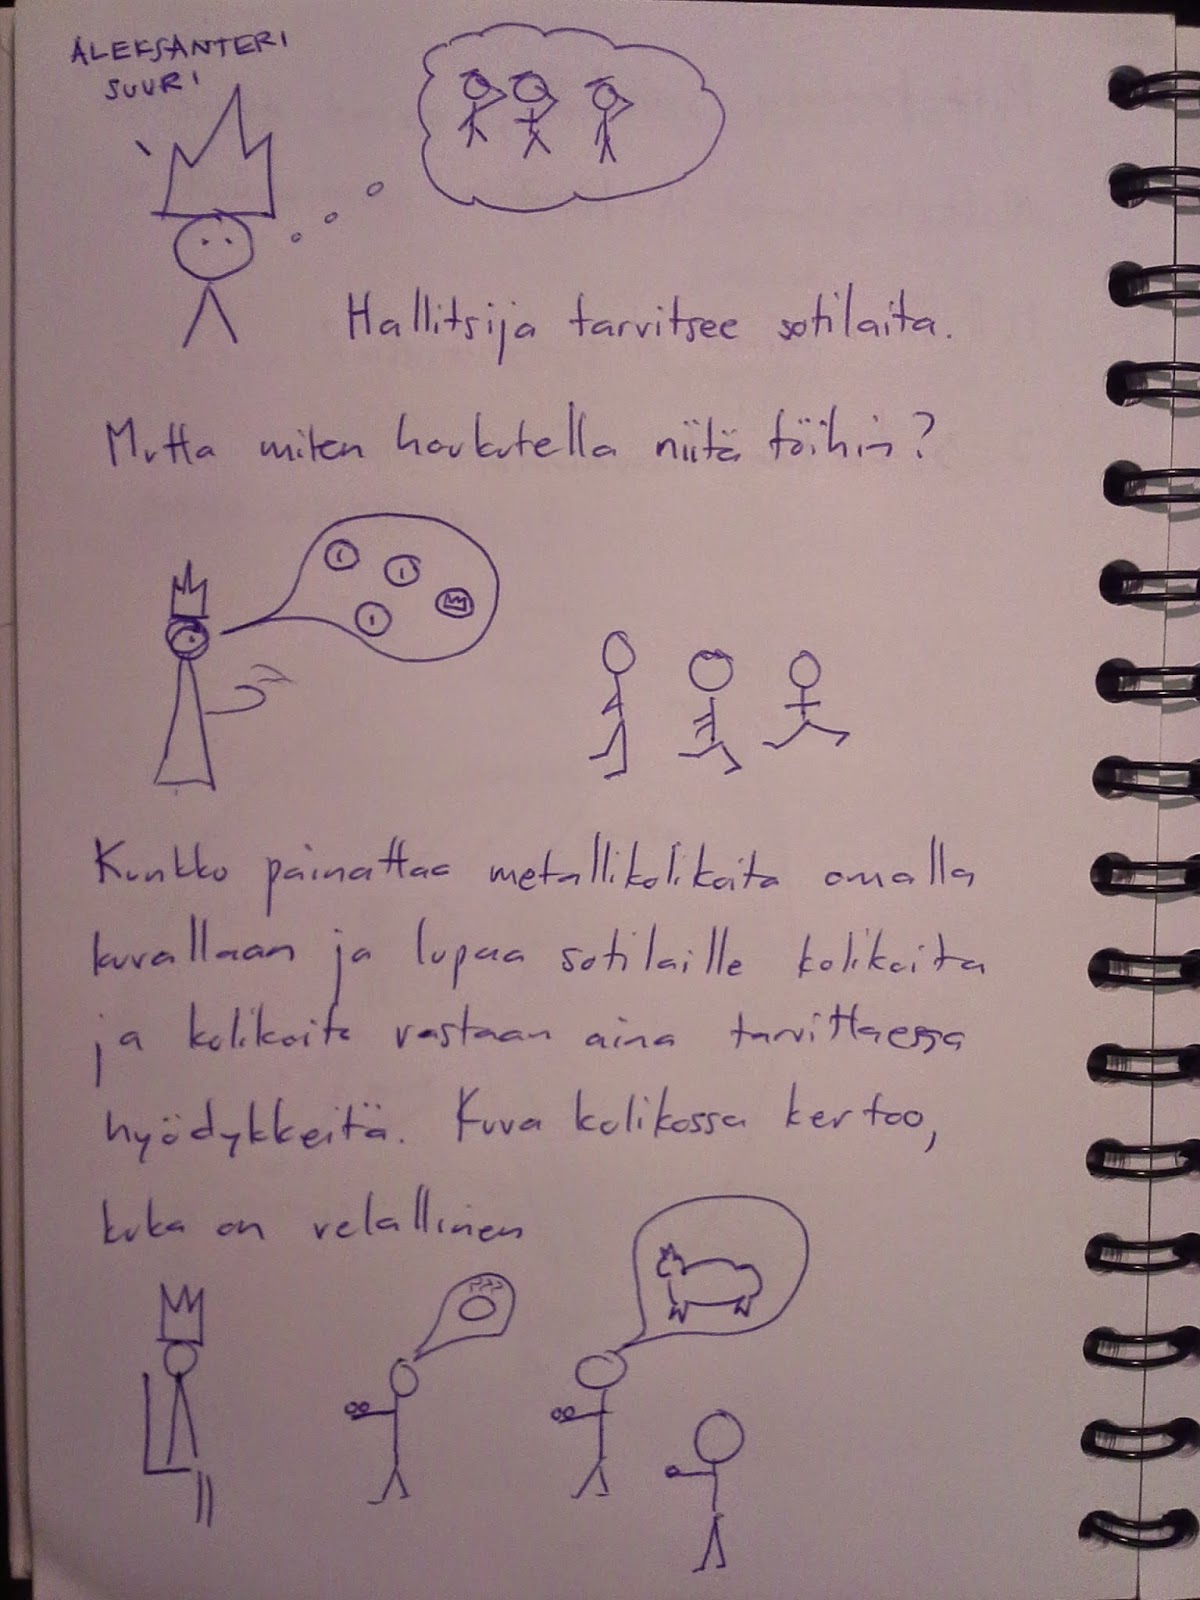 ALEKSANTERI
SUURI
Hallitsija tarvitsee sotilaita.
Mutta miten houkutella niitä töihin?
Kunkko painattaa metallikolikoita omalla
kuvallaan ja lupaa sotilaille kolikoita
ja kolikoita vastaan aina tarvittaessa
hyödykkeitä. Kuva kolikossa kertoo,
kuka on velallinen